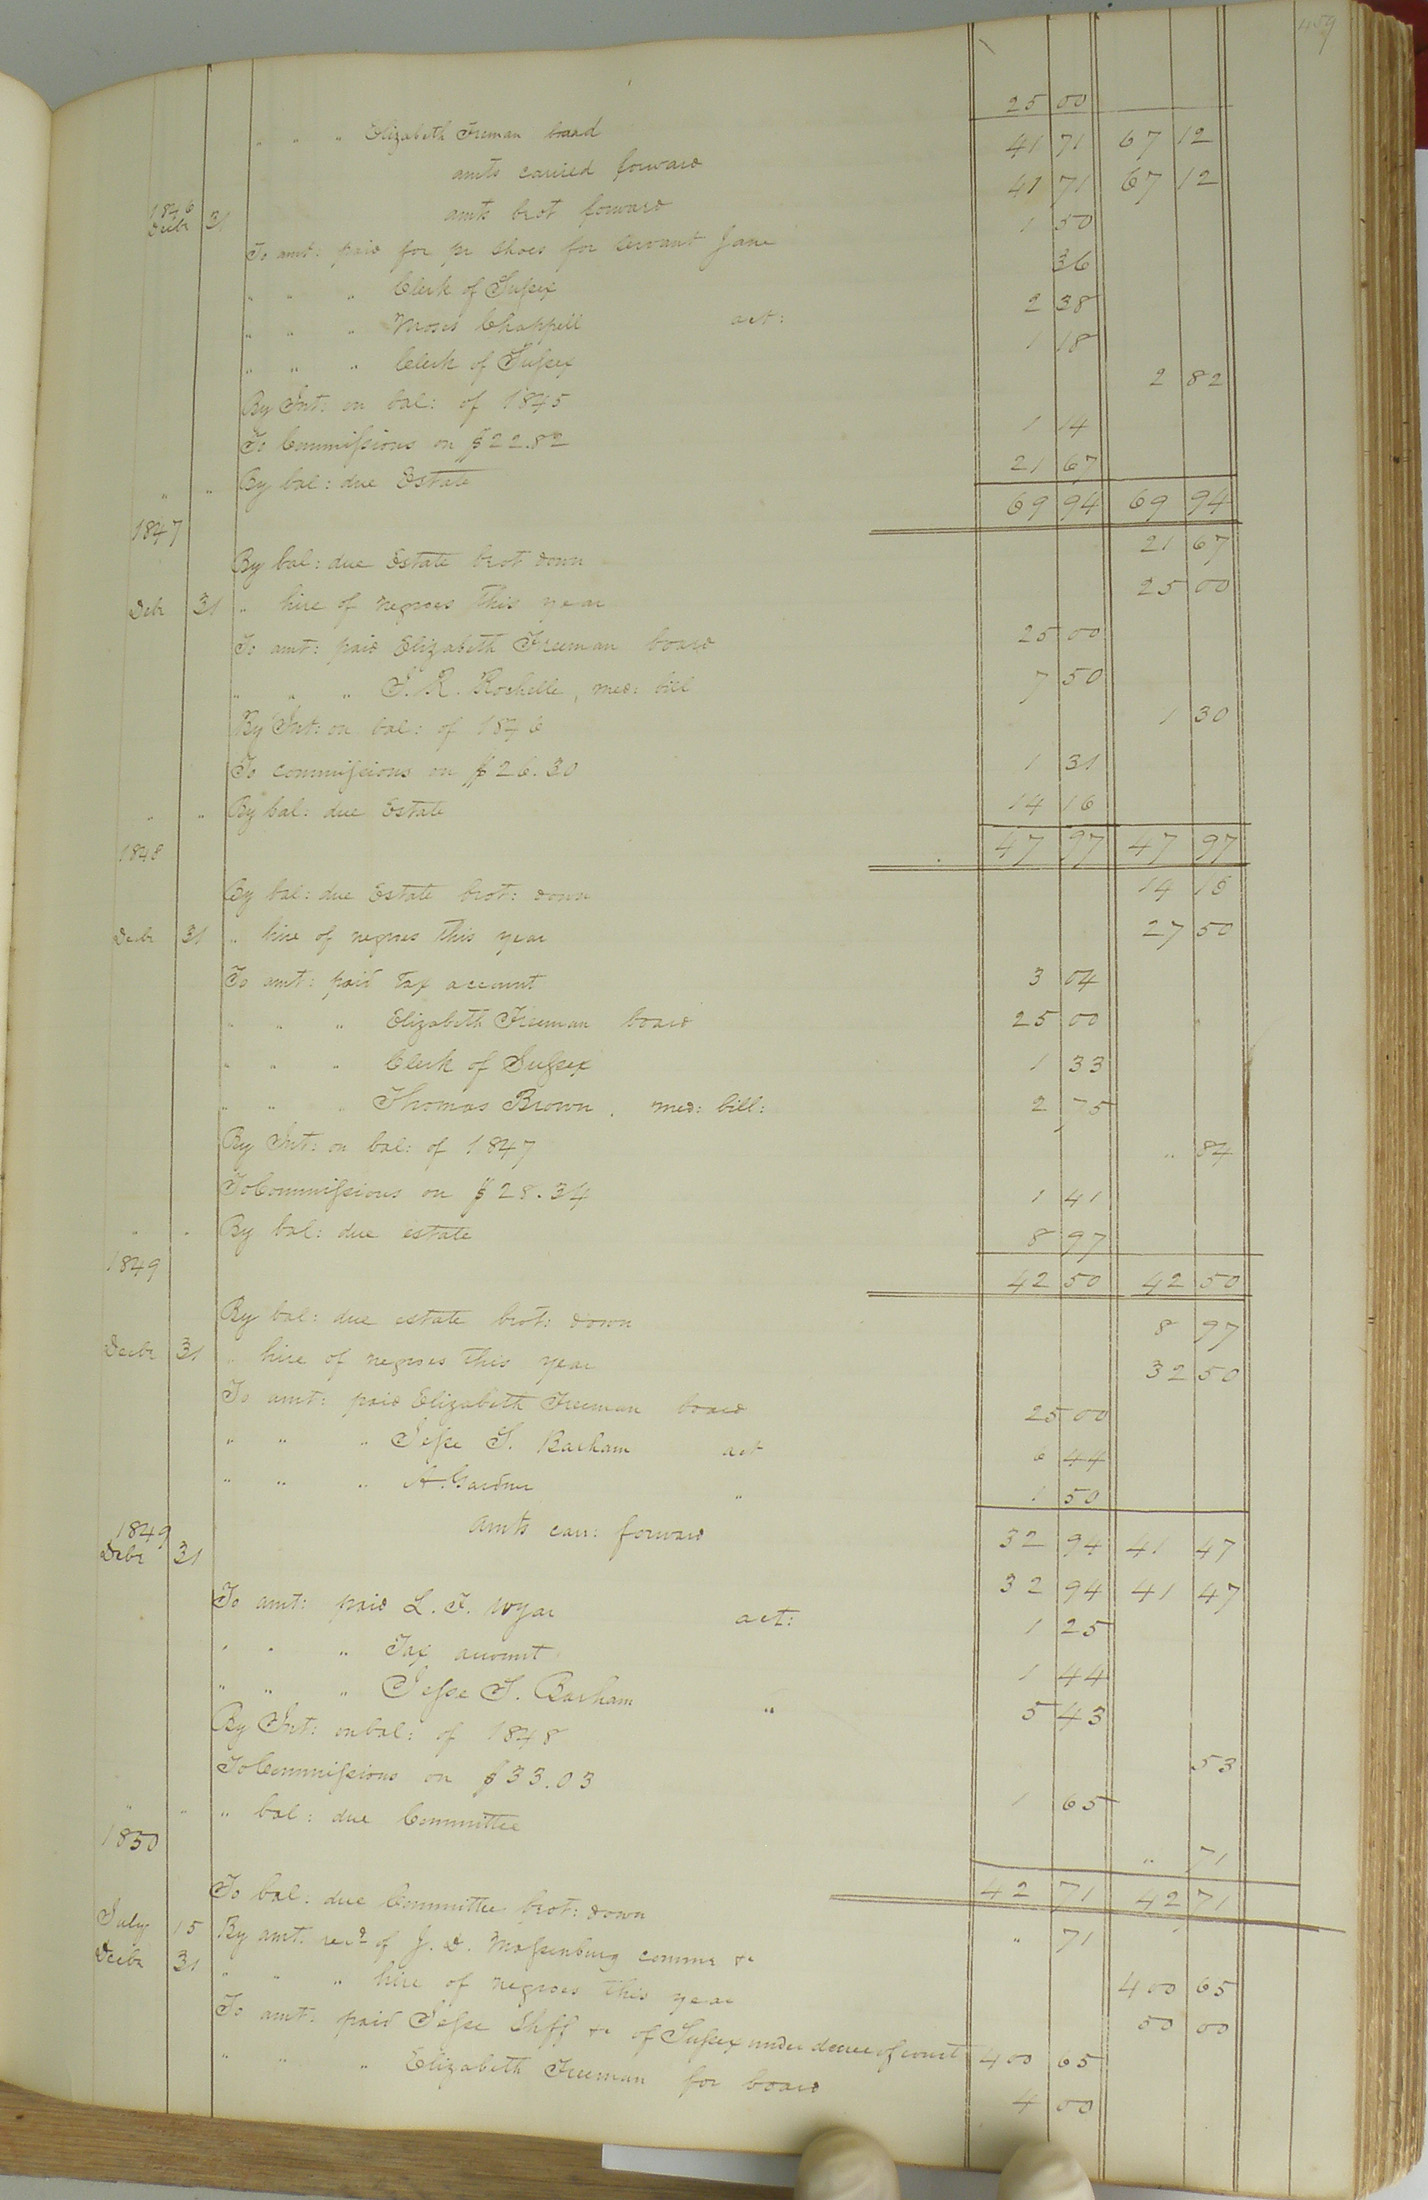 459
" " " Elizabeth Freeman board 25 00
amts carried forward 41 71 67 12
1846 Decbr 31 amts brot forward 41 71 67 12
To amt: paid for pr shoes for servant Jane 1 50
" " " Clerk of Sussex 36
" " " Moses Chappell act: 2 38
" " " Clerk of Sussex 1 18
By Int: on bal: of 1845 2 82
To Commissions on $22.82 1 14
" " By bal: due Estate 21 67
69 94 69 94
1847
By bal: due Estate brot down 21 67
Debr 31 " hire of negroes this year 25 00
To amt: paid Elizabeth Freeman board 25 00
" " " J. R. Rochelle, med: bill 7 50
By Int: on bal: of 1846 1 30
To commissions on $26.30 1 31
" " By bal: due Estate 14 16
47 97 47 97
1848
By bal: due Estate brot: down 14 16
Decbr 31 " hire of negroes this year 27 50
To amt: paid Tax account 3 04
" " " Elizabeth Freeman board 25 00
" " " Clerk of Sussex 1 33
" " " Thomas Brown. med: bill: 2 75
By Int: on bal: of 1847 " 84
To Commissions on $28.34 1 41
" " By bal: due estate 8 97
42 50 42 50
1849
By bal: due estate brot: down 8 97
Decbr 31 " hire of negroes this year 32 50
To amt: paid Elizabeth Freeman board 25 00
" " " Jesse S. Barham act 6 44
" " " H. Gardner " 1 50
amts carr: forward 32 94 41 47
1849 Debr 31 32 94 41 47
To amt: paid L. F. act: 1 25
" " " Tax account 1 44
" " " Jesse S. Barham " 5 43
By Int: on bal: of 1848 53
To Commissions on $33.03 1 65
" " " bal: due Committee " 71
42 71 42 71
1850
To bal: due Committee brot: down " 71
July 15 By amt. recd of J. D. Massenburg commr &c 400 65
Decbr 31 " " " hire of negroes this year 50 00
To amt: paid Jesse Shff &c of Sussex under decree of court 400 65
" " " Elizabeth Freeman for board 4 00